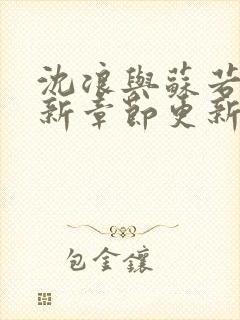 沈浪與蘇若
新章節更新
包金鑲